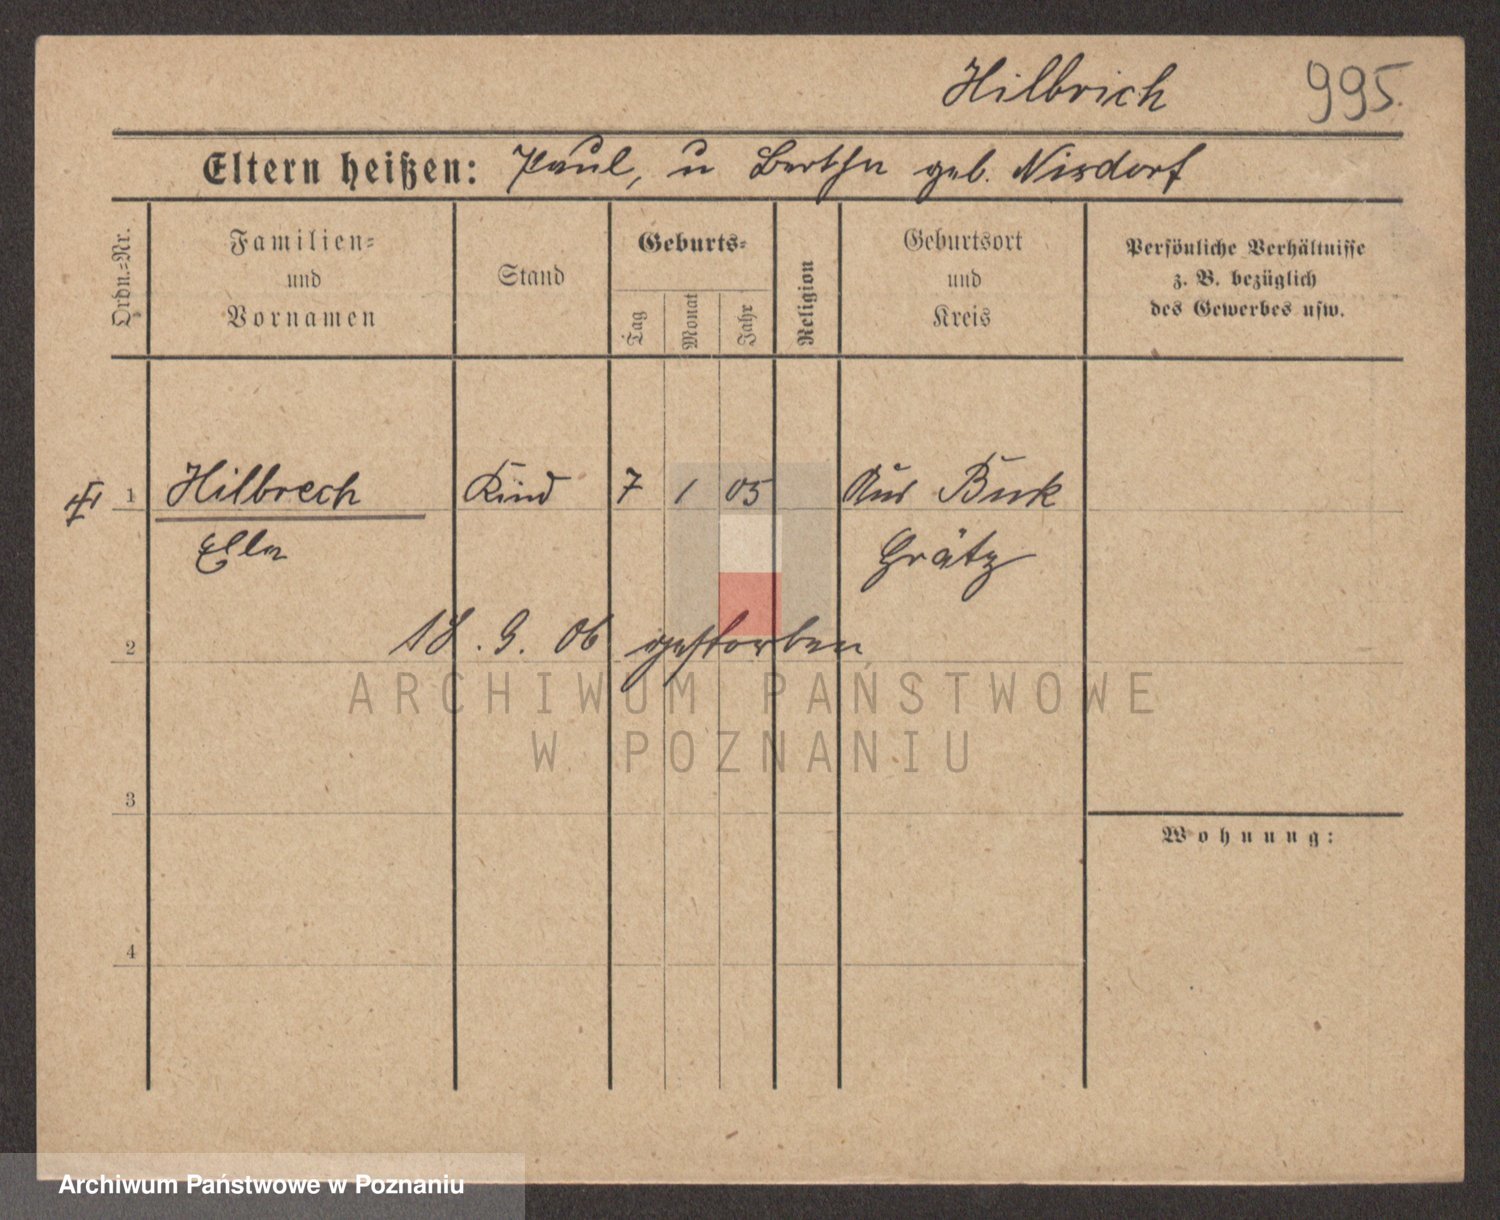 Hilbrich 995.
Eltern heißen: Paul, u Bertha geb. Nisdorf
Ordn.=Nr.
Familien=
und
Vornamen
Stand
Geburts=
Tag
Monat
Jahr
Religion
Geburtsort
und
Kreis
Persönliche Verhältnisse
z. B. bezüglich
des Gewerbes usw.
1 Hilbrech Kind 7 1 05 Buk
Ella Grätz
2 18. 9. 06 gestorben
ARCHIWUM PAŃSTWOWE
W POZNANIU
3
Wohnung:
4
Archiwum Państwowe w Poznaniu